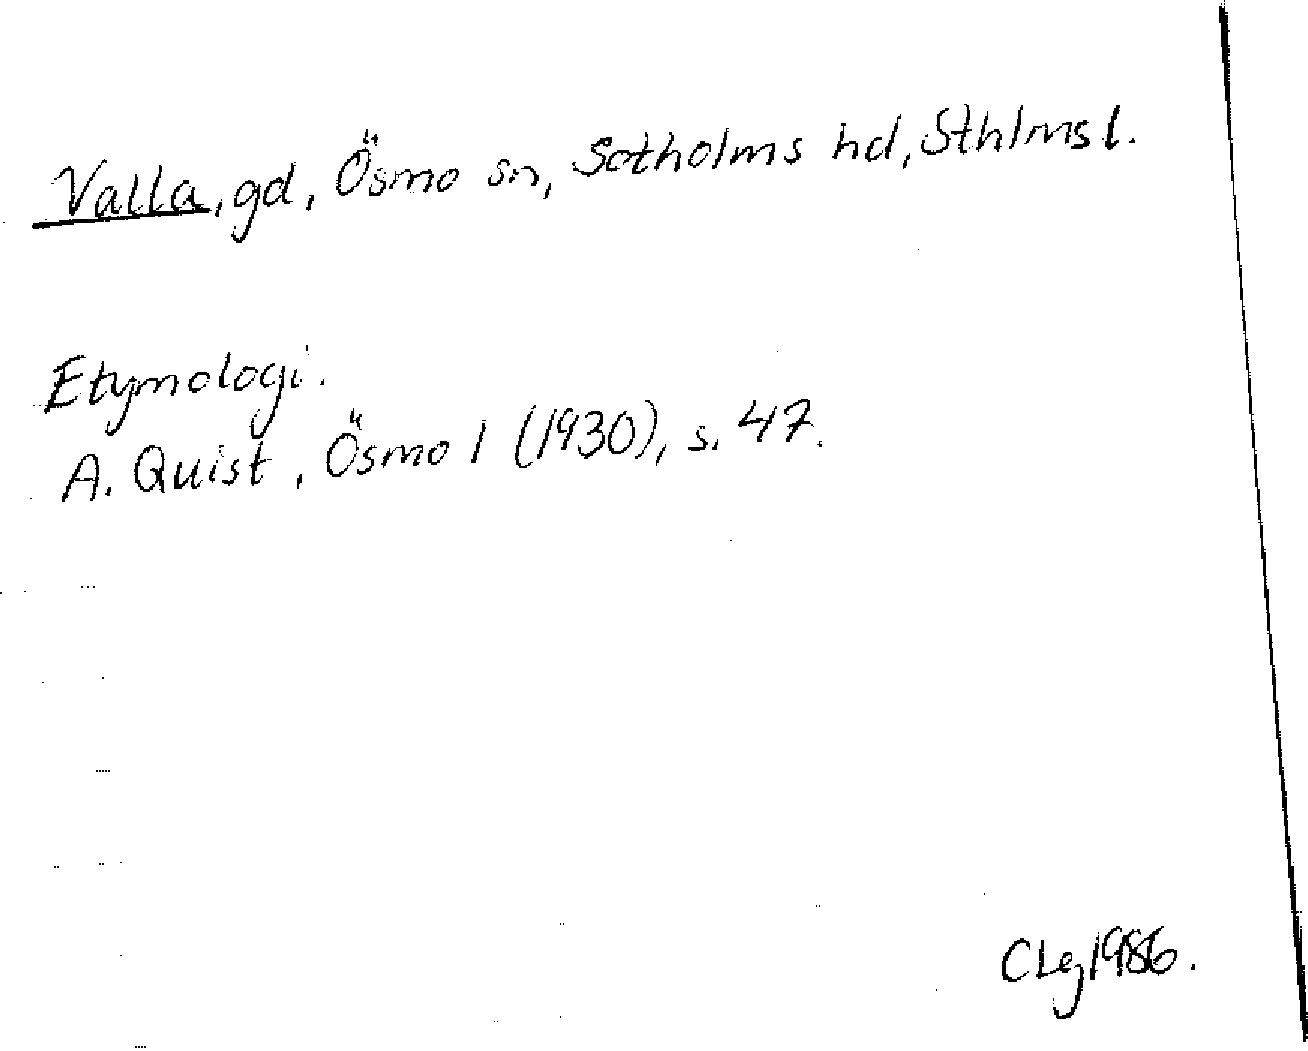 Valla, gd, Ösmo sn, Sotholms hd, Sthlms l.
Etymologi.
A. Quist, Ösmo 1 (1930), s. 47.
CLej 1986.